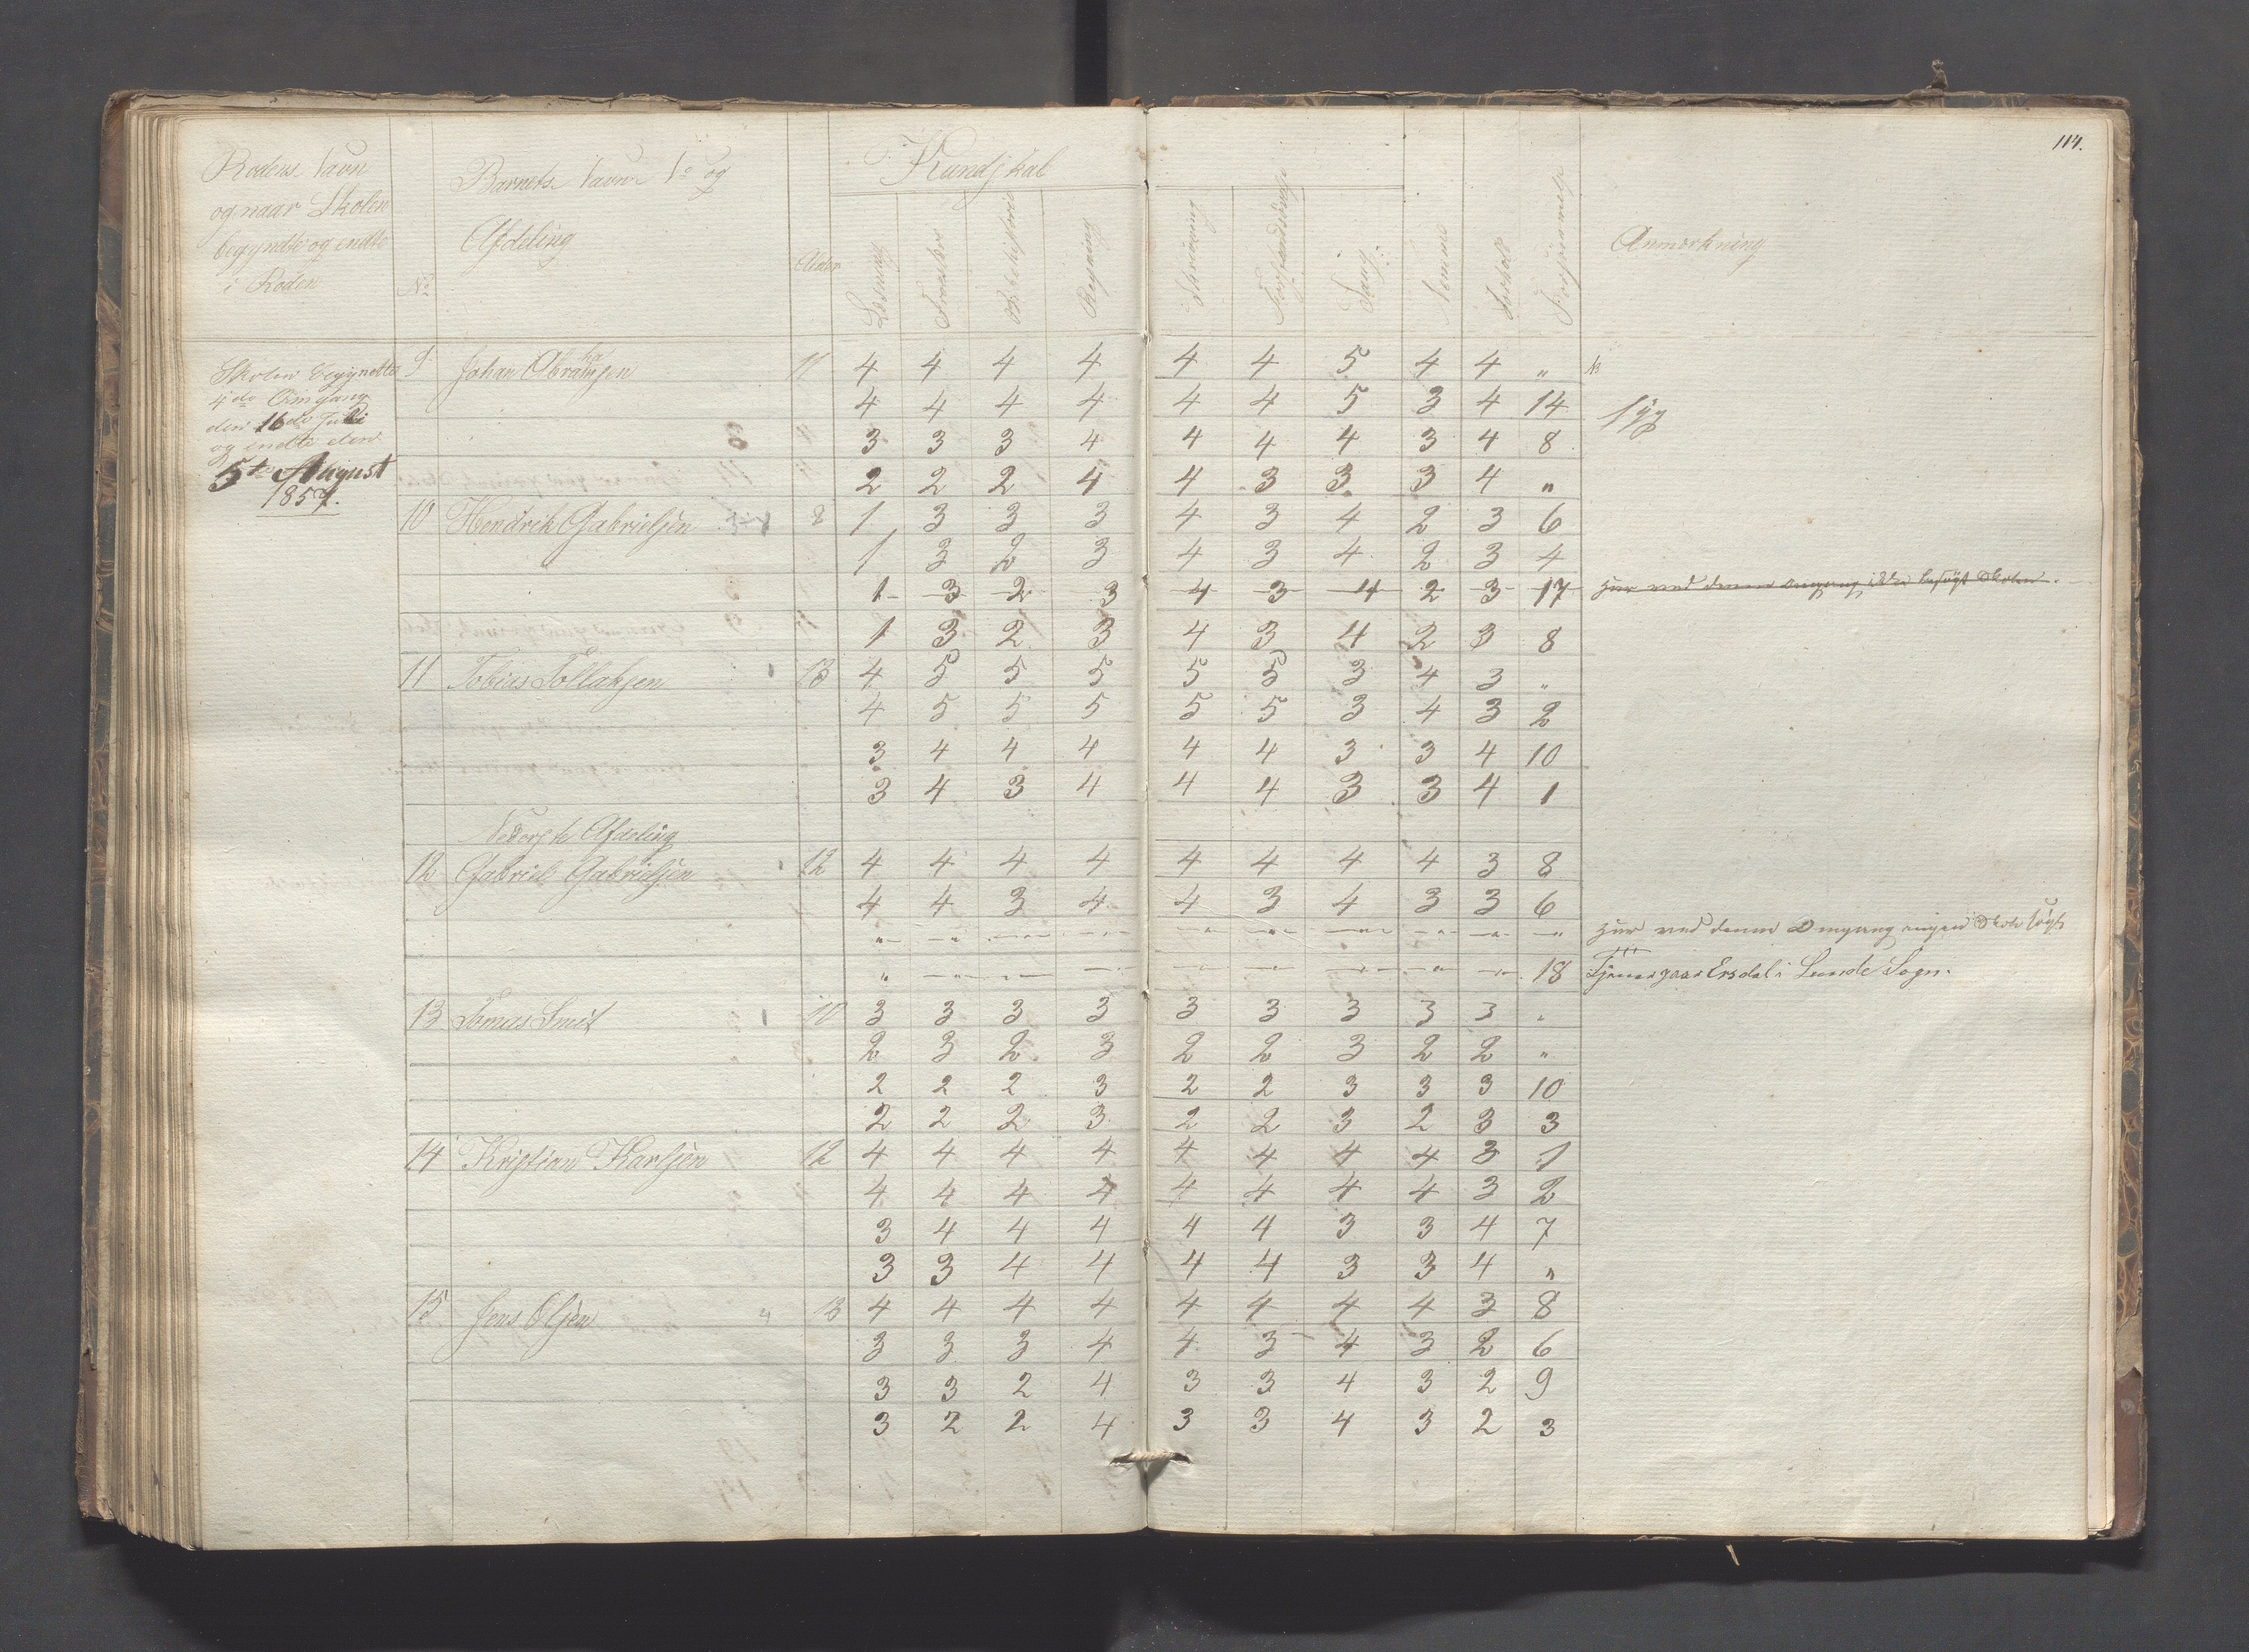 114.
Rodens Navn
og naar Skolen
begyndte og endte
i Roden
No
Barnets Navn No og
Afdeling
Alder
Kundskab
Læsning
Troeslære
Bibelhistorie
Regning
Skrivning
Forstandsøvelse
Sang
Nemme
Forhold
Forsømmelse
Anmerkning
Skolen begyndte
4de Omgang
den 16de Juli
og endte den
5te August
1857.
9 Johan Abrahamsen 11 4 4 4 4 4 4 5 4 4 „
4 4 4 4 4 4 5 3 4 14 syg
3 3 3 4 4 4 4 3 4 8
2 2 2 4 4 3 3 3 4 „
10 Hendrik Gabrielsen 8 1 3 3 3 4 3 4 2 3 6
1 3 2 3 4 3 4 2 3 4
1 3 2 3 4 3 4 2 3 17 har ved denne omgang ikke besøgt Skolen.
1 3 2 3 4 3 4 2 3 8
11 Tobias Tollaksen 13 4 5 5 5 5 5 3 4 3 „
4 5 5 5 5 5 3 4 3 2
3 4 4 4 4 4 3 3 4 10
3 4 3 4 4 4 3 3 4 1
Nederste Afdeling
12 Gabriel Gabrielsen 12 4 4 4 4 4 4 4 4 3 8
4 4 3 4 4 3 4 3 3 6
„ „ „ „ „ „ „ „ „ „ har ved denne Omgang ingen Skole søgt
„ „ „ „ „ „ „ „ „ 18 Tjener paa Ersdal i Lunde Sogn.
13 Tomas Smit 10 3 3 3 3 3 3 3 3 3 „
2 3 2 3 2 2 3 2 2 „
2 2 2 3 2 2 3 3 3 10
2 2 2 3 2 2 3 2 3 3
14 Kristian Karlsen 12 4 4 4 4 4 4 4 4 3 1
4 4 4 4 4 4 4 4 3 2
3 4 4 4 4 4 3 3 4 7
3 3 4 4 4 4 3 3 4 „
15 Jens Olsen 13 4 4 4 4 4 4 4 4 3 8
3 3 3 4 4 3 4 3 2 6
3 3 2 4 3 3 4 3 2 9
3 2 2 4 3 3 4 3 2 3